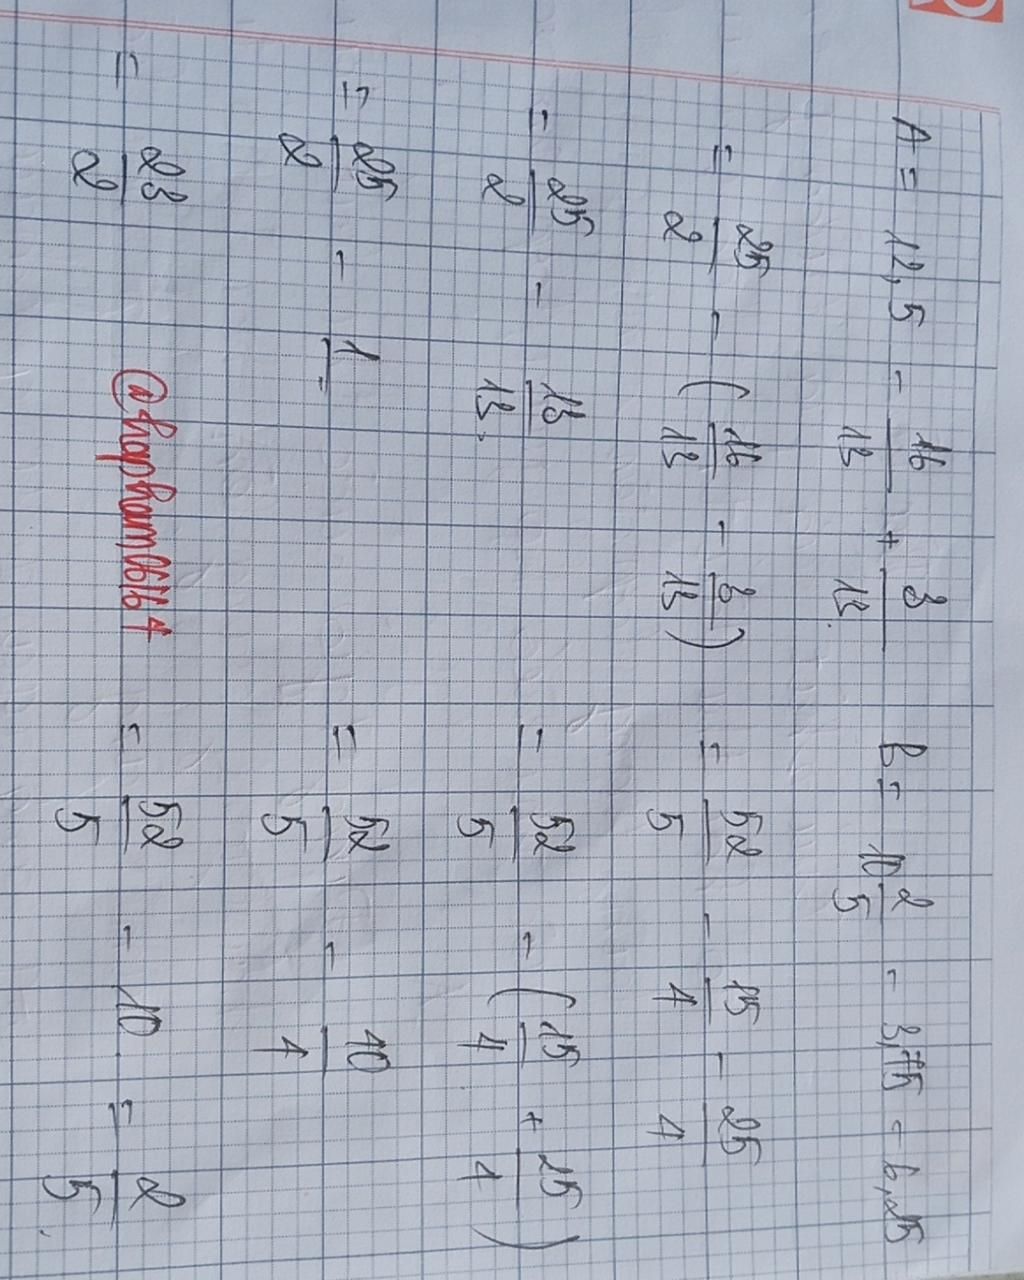 A = 12,5 - 16/13 + 3/13
= 25/2 - ( 16/13 - 3/13 )
= 25/2 - 13/13
= 25/2 - 1
= 23/2
@hapham06164
B = 10 2/5 - 3,75 - 6,25
= 52/5 - 15/4 - 25/4
= 52/5 - ( 15/4 + 25/4 )
= 52/5 - 40/4
= 52/5 - 10 = 2/5